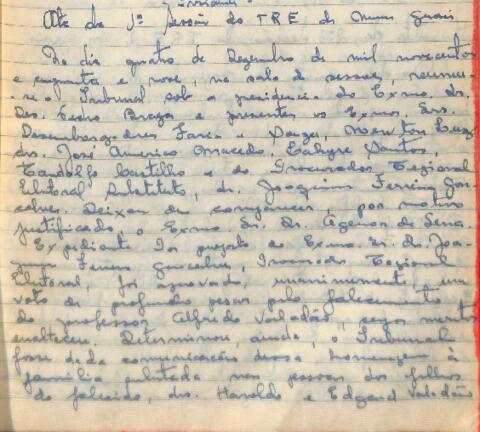 Ata da 1ª Sessão do TRE de Minas Gerais
No dia quatro de Dezembro de mil novecentos
e cinquenta e nove, na sala de sessões, reuniu-
-se o Tribunal sob a presidencia do Exmo. Sr.
Des. Pedro Braga e presentes os Exmos. Srs.
Desembargadores Faria e Souza, Newton Luz,
drs. José Americo Macedo, Santos,
Castilho e do Procurador Regional
Eleitoral Substituto, dr. Joaquim Ferreira Gon-
calves. Deixou de comparecer, por motivo
justificado, o Exmo. Sr. Dr. Agenor de Sena.
Expediente Por proposta do Exmo. sr. dr. Joa-
quim Ferreira Goncalves, Procurador Regional
Eleitoral, foi aprovado, unanimemente, um
voto de profundo pesar pelo falecimento
do professor Alfredo Valadão, cujos meritos
enalteceu. Determinou, ainda, o Tribunal
fosse dada comunicacão dessa homenagem à
familia enlutada nas pessoas dos filhos
do falecido, drs. Haroldo e Edgard Valadão